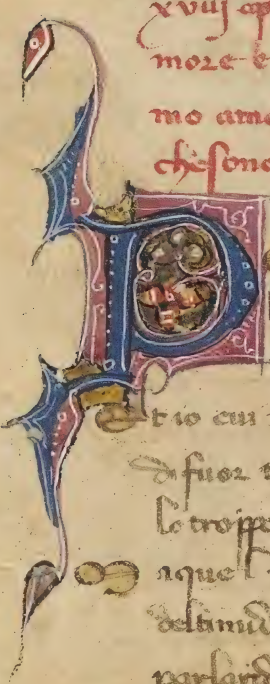 xviij cap
more e
mo amo
che sono
P
Et io cui
di fuor
Lo tropp
Maquel
deltimid
parland